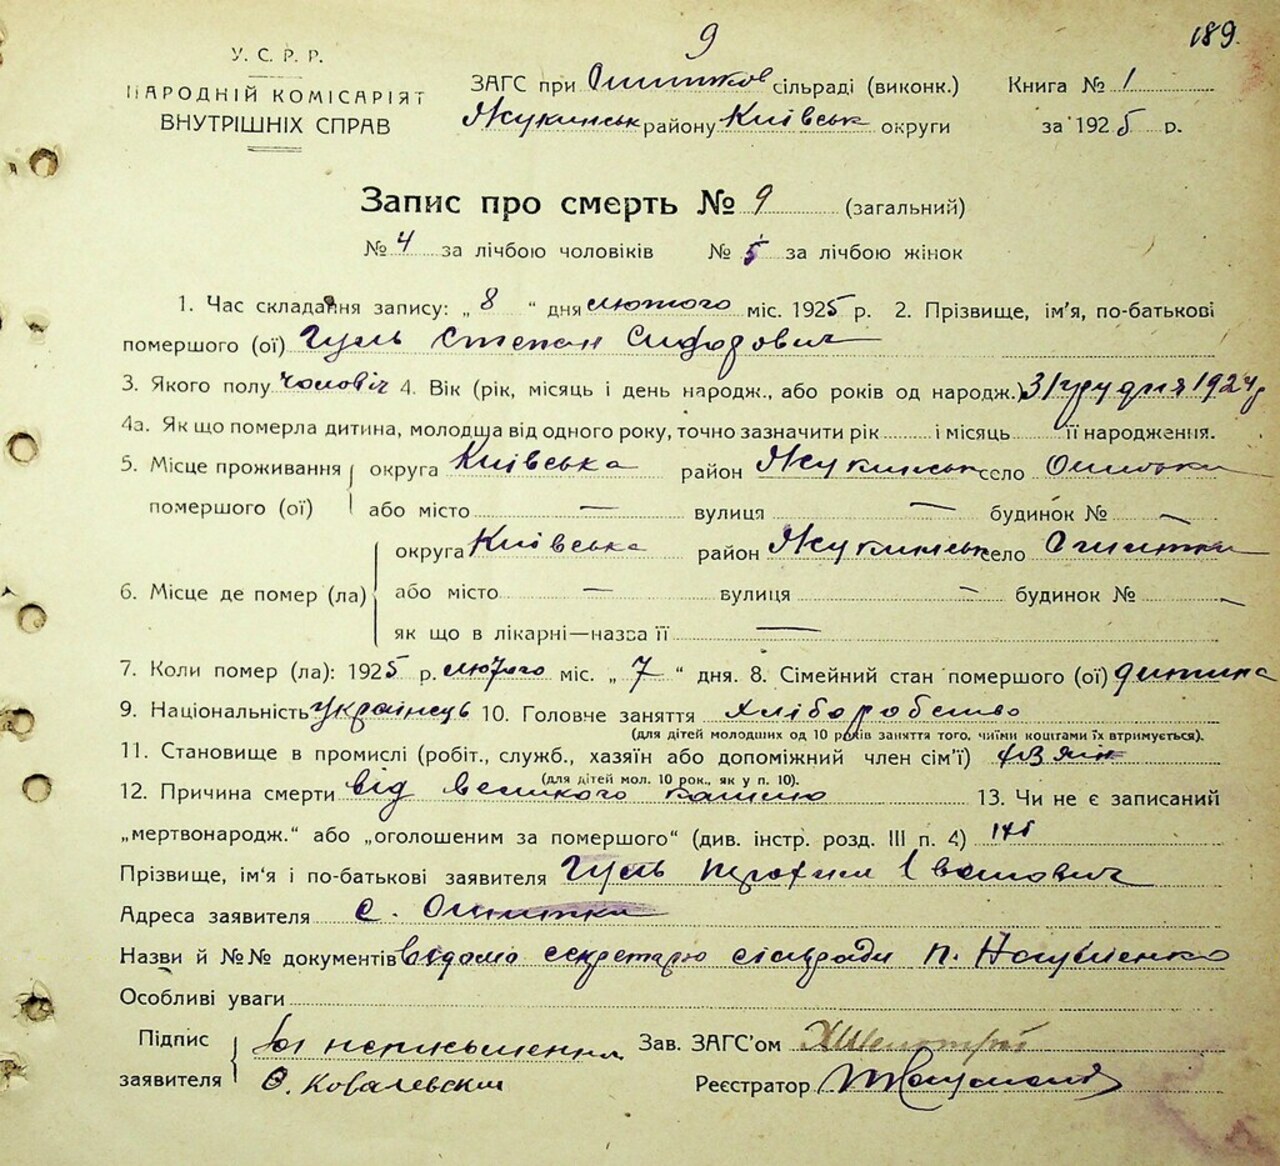 9
189.
У. С. Р. Р.
НАРОДНІЙ КОМІСАРІЯТ
ВНУТРІШНІХ СПРАВ
ЗАГС при сільраді (виконк.)
району Київськ округи
Книга № 1
за 1925 р.
Запис про смерть № 9 (загальний)
№ 4 за лічбою чоловіків № 5 за лічбою жінок
1. Час складання запису: „ 8 “ дня лютого міс. 1925 р. 2. Прізвище, ім'я, по-батькові
помершого (ої) Гуль Степан Сидорович
3. Якого полу чоловіч 4. Вік (рік, місяць і день народж., або років од народж.) 31 грудня 1924 р
4а. Як що померла дитина, молодша від одного року, точно зазначити рік і місяць її народження.
5. Місце проживання помершого (ої) округа Київська район село Ошитки
або місто — вулиця — будинок № —
6. Місце де помер (ла) округа Київська район село Ошитки
або місто — вулиця — будинок № —
як що в лікарні—назва її —
7. Коли помер (ла): 1925 р. лютого міс. „ 7 “ дня. 8. Сімейний стан помершого (ої) дитина
9. Національність українець 10. Головне заняття хліборобство
(для дітей молодших од 10 років заняття того, чиїми коштами їх втримується).
11. Становище в промислі (робіт., служб., хазяїн або допоміжний член сім'ї)
(для дітей мол. 10 рок., як у п. 10).
12. Причина смерти від великого кашлю 13. Чи не є записаний
„мертвонародж.“ або „оголошеним за помершого“ (див. інстр. розд. III п. 4) ні
Прізвище, ім'я і по-батькові заявителя Гуль Трохим Іванович
Адреса заявителя с. Ошитки
Назви й №№ документів відомо секретарю сільради п.
Особливі уваги
Підпис заявителя неписьменний
Ковалевский
Зав. ЗАГС'ом
Реєстратор